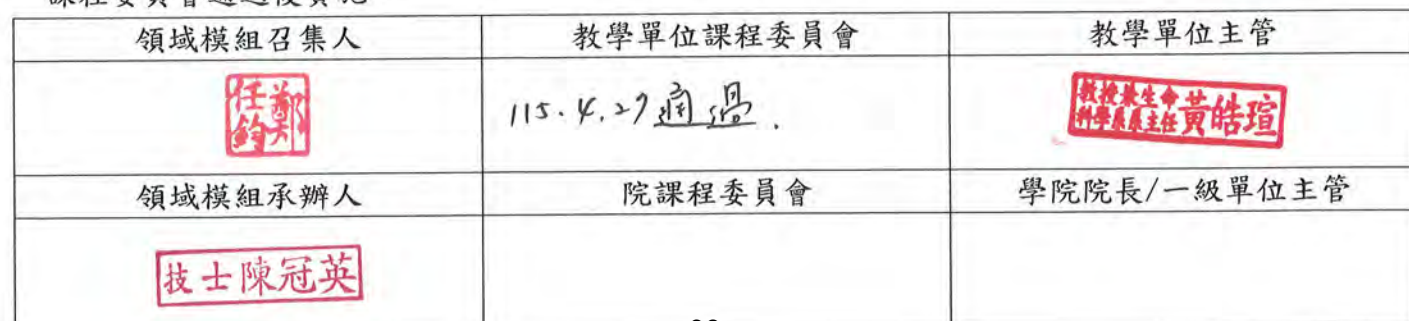 領域模組召集人 教學單位課程委員會 教學單位主管
鄭任鈞 115.4.27通過. 教授兼生命科學系系主任黃皓瑄
領域模組承辦人 院課程委員會 學院院長/一級單位主管
技士陳冠英